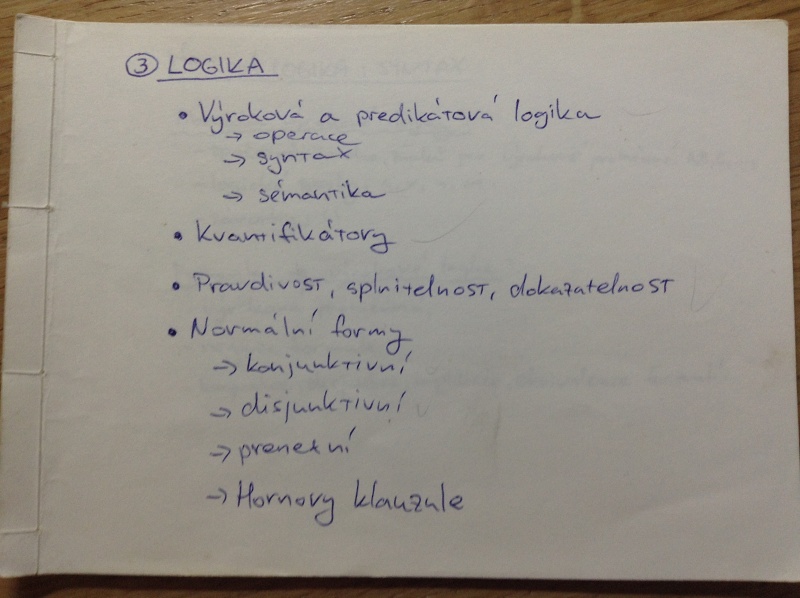 ③ LOGIKA
• Výroková a predikátová logika
→ operace
→ syntax
→ sémantika
• Kvantifikátory
• Pravdivost, splnitelnost, dokazatelnost
• Normální formy
→ konjunktivní
→ disjunktivní
→ prenexní
→ Hornovy klauzule